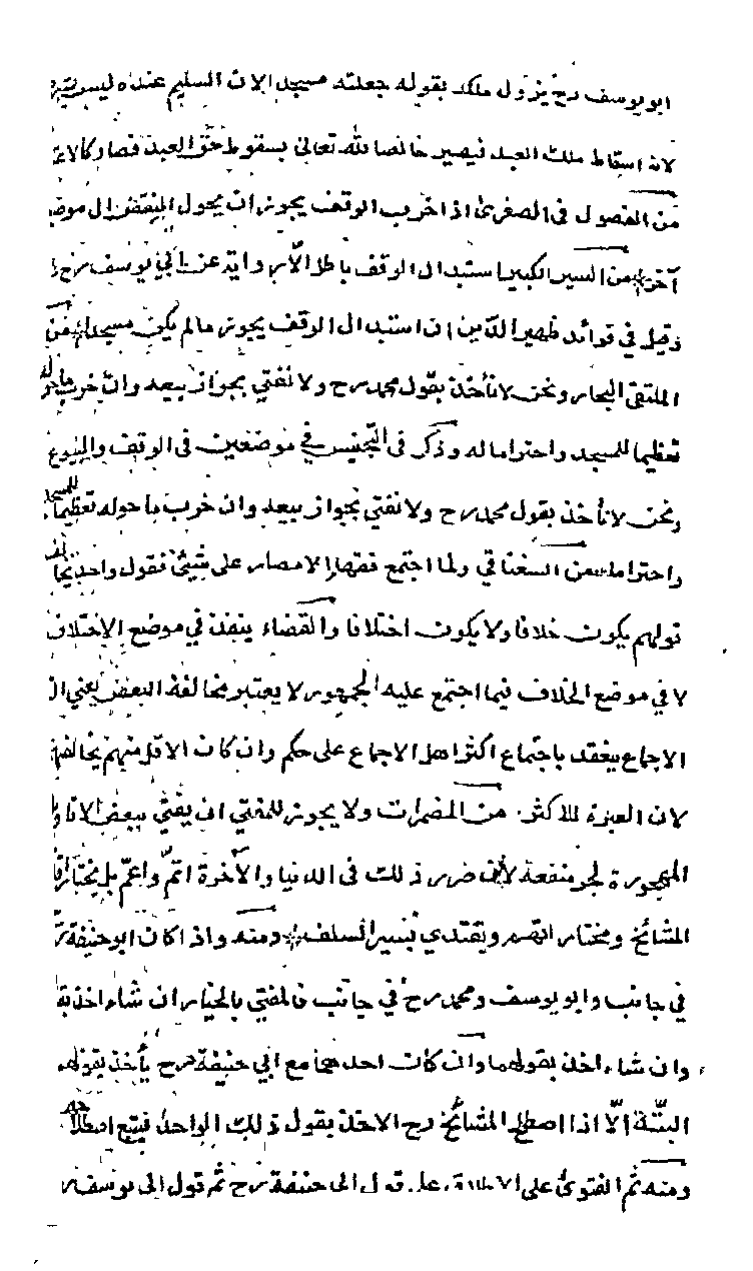 ابويوسف رح يزول ملكه بقوله جعلته مسجدا لان التسليم عنده ليس
لانه اسقاط ملك العبد فيصير خالصا لله تعالى بسقوط حق العبد فصار كالاعتا
من الفصول في الصغرى اذا خرب الوقف يجوز ان يحول النقض الى موضع
آخر من السير الكبير استبدال الوقف باطل الا رواية عن ابي يوسف رح
وقيل في فوائد ظهير الدين ان استبدال الوقف يجوز مالم يكن مسجدا من
الملتقى البحار ونحن لا نأخذ بقول محمد رح ولا نفتي بجواز بيعه وان خرب ما حوله
تعظيما للمسجد واحتراما له وذكر في التجنيس في موضعين في الوقف والبيوع
ونحن لا نأخذ بقول محمد رح ولا نفتي بجواز بيعه وان خرب ما حوله تعظيما للمسجد
واحتراما من السغناقي ولما اجتمع فقهاء الامصار على شيئ فقول واحد يخالف
قولهم يكون خلافا ولا يكون اختلافا والقضاء ينفذ في موضع الاختلاف
لا في موضع الخلاف فيما اجتمع عليه الجمهور لا يعتبر مخالفة البعض يعني ان
الاجماع ينعقد باجتماع اكثر اهل الاجماع على حكم وان كان الاقل منهم يخالفهم
لان العبرة للاكثر من المضمرات ولا يجوز للمفتي ان يفتي ببعض الاقاويل
المهجورة لجر منفعة لان ضرر ذلك في الدنيا والآخرة اتم واعم بل يختار
المشائخ ومختاراتهم ويقتدي بسير السلف ومنه واذا كان ابو حنيفة
في جانب وابو يوسف ومحمد رح في جانب فالمفتي بالخيار ان شاء اخذ
وان شاء اخذ بقولهما وان كان احدهما مع ابي حنيفة رح يأخذ بقولهما
البتة الا اذا اصطلح المشائخ رح الاخذ بقول ذلك الواحد فيتبع اصطلاحهم
ومنه ثم الفتوى على الاطلاق على قول ابي حنيفة رح ثم قول ابي يوسف